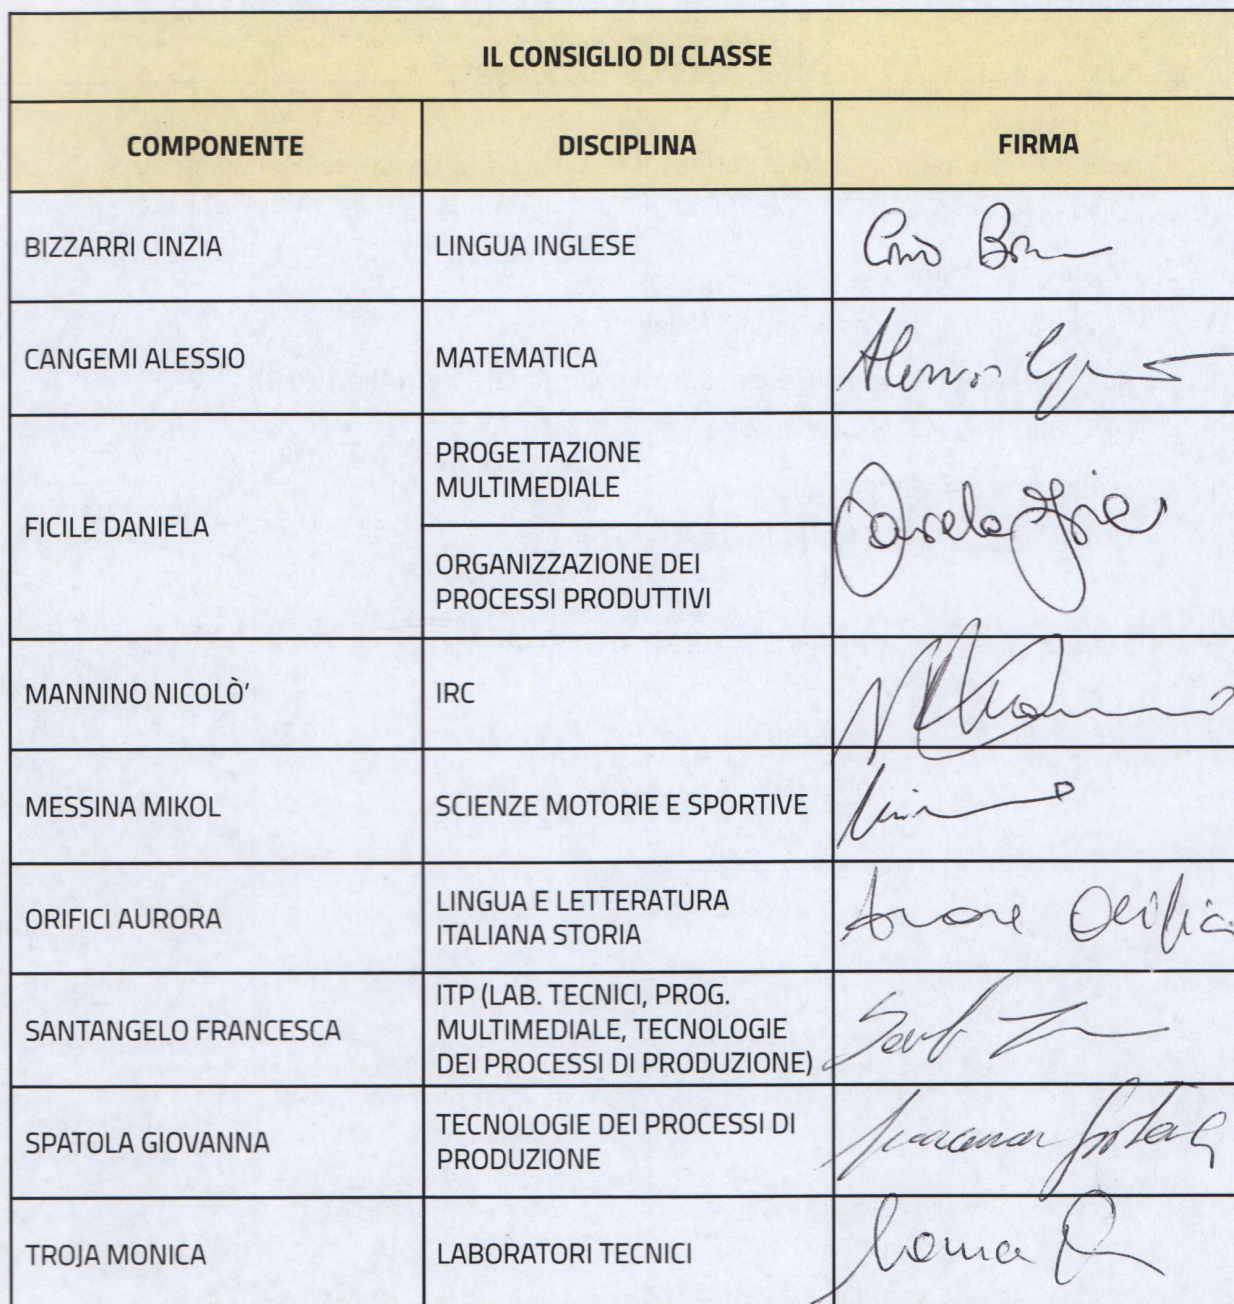 IL CONSIGLIO DI CLASSE
COMPONENTE DISCIPLINA FIRMA
BIZZARRI CINZIA LINGUA INGLESE
CANGEMI ALESSIO MATEMATICA
FICILE DANIELA
PROGETTAZIONE
MULTIMEDIALE
ORGANIZZAZIONE DEI
PROCESSI PRODUTTIVI
MANNINO NICOLÒ’ IRC
MESSINA MIKOL SCIENZE MOTORIE E SPORTIVE
ORIFICI AURORA
LINGUA E LETTERATURA
ITALIANA STORIA
SANTANGELO FRANCESCA
ITP (LAB. TECNICI, PROG.
MULTIMEDIALE, TECNOLOGIE
DEI PROCESSI DI PRODUZIONE)
SPATOLA GIOVANNA
TECNOLOGIE DEI PROCESSI DI
PRODUZIONE
TROJA MONICA LABORATORI TECNICI